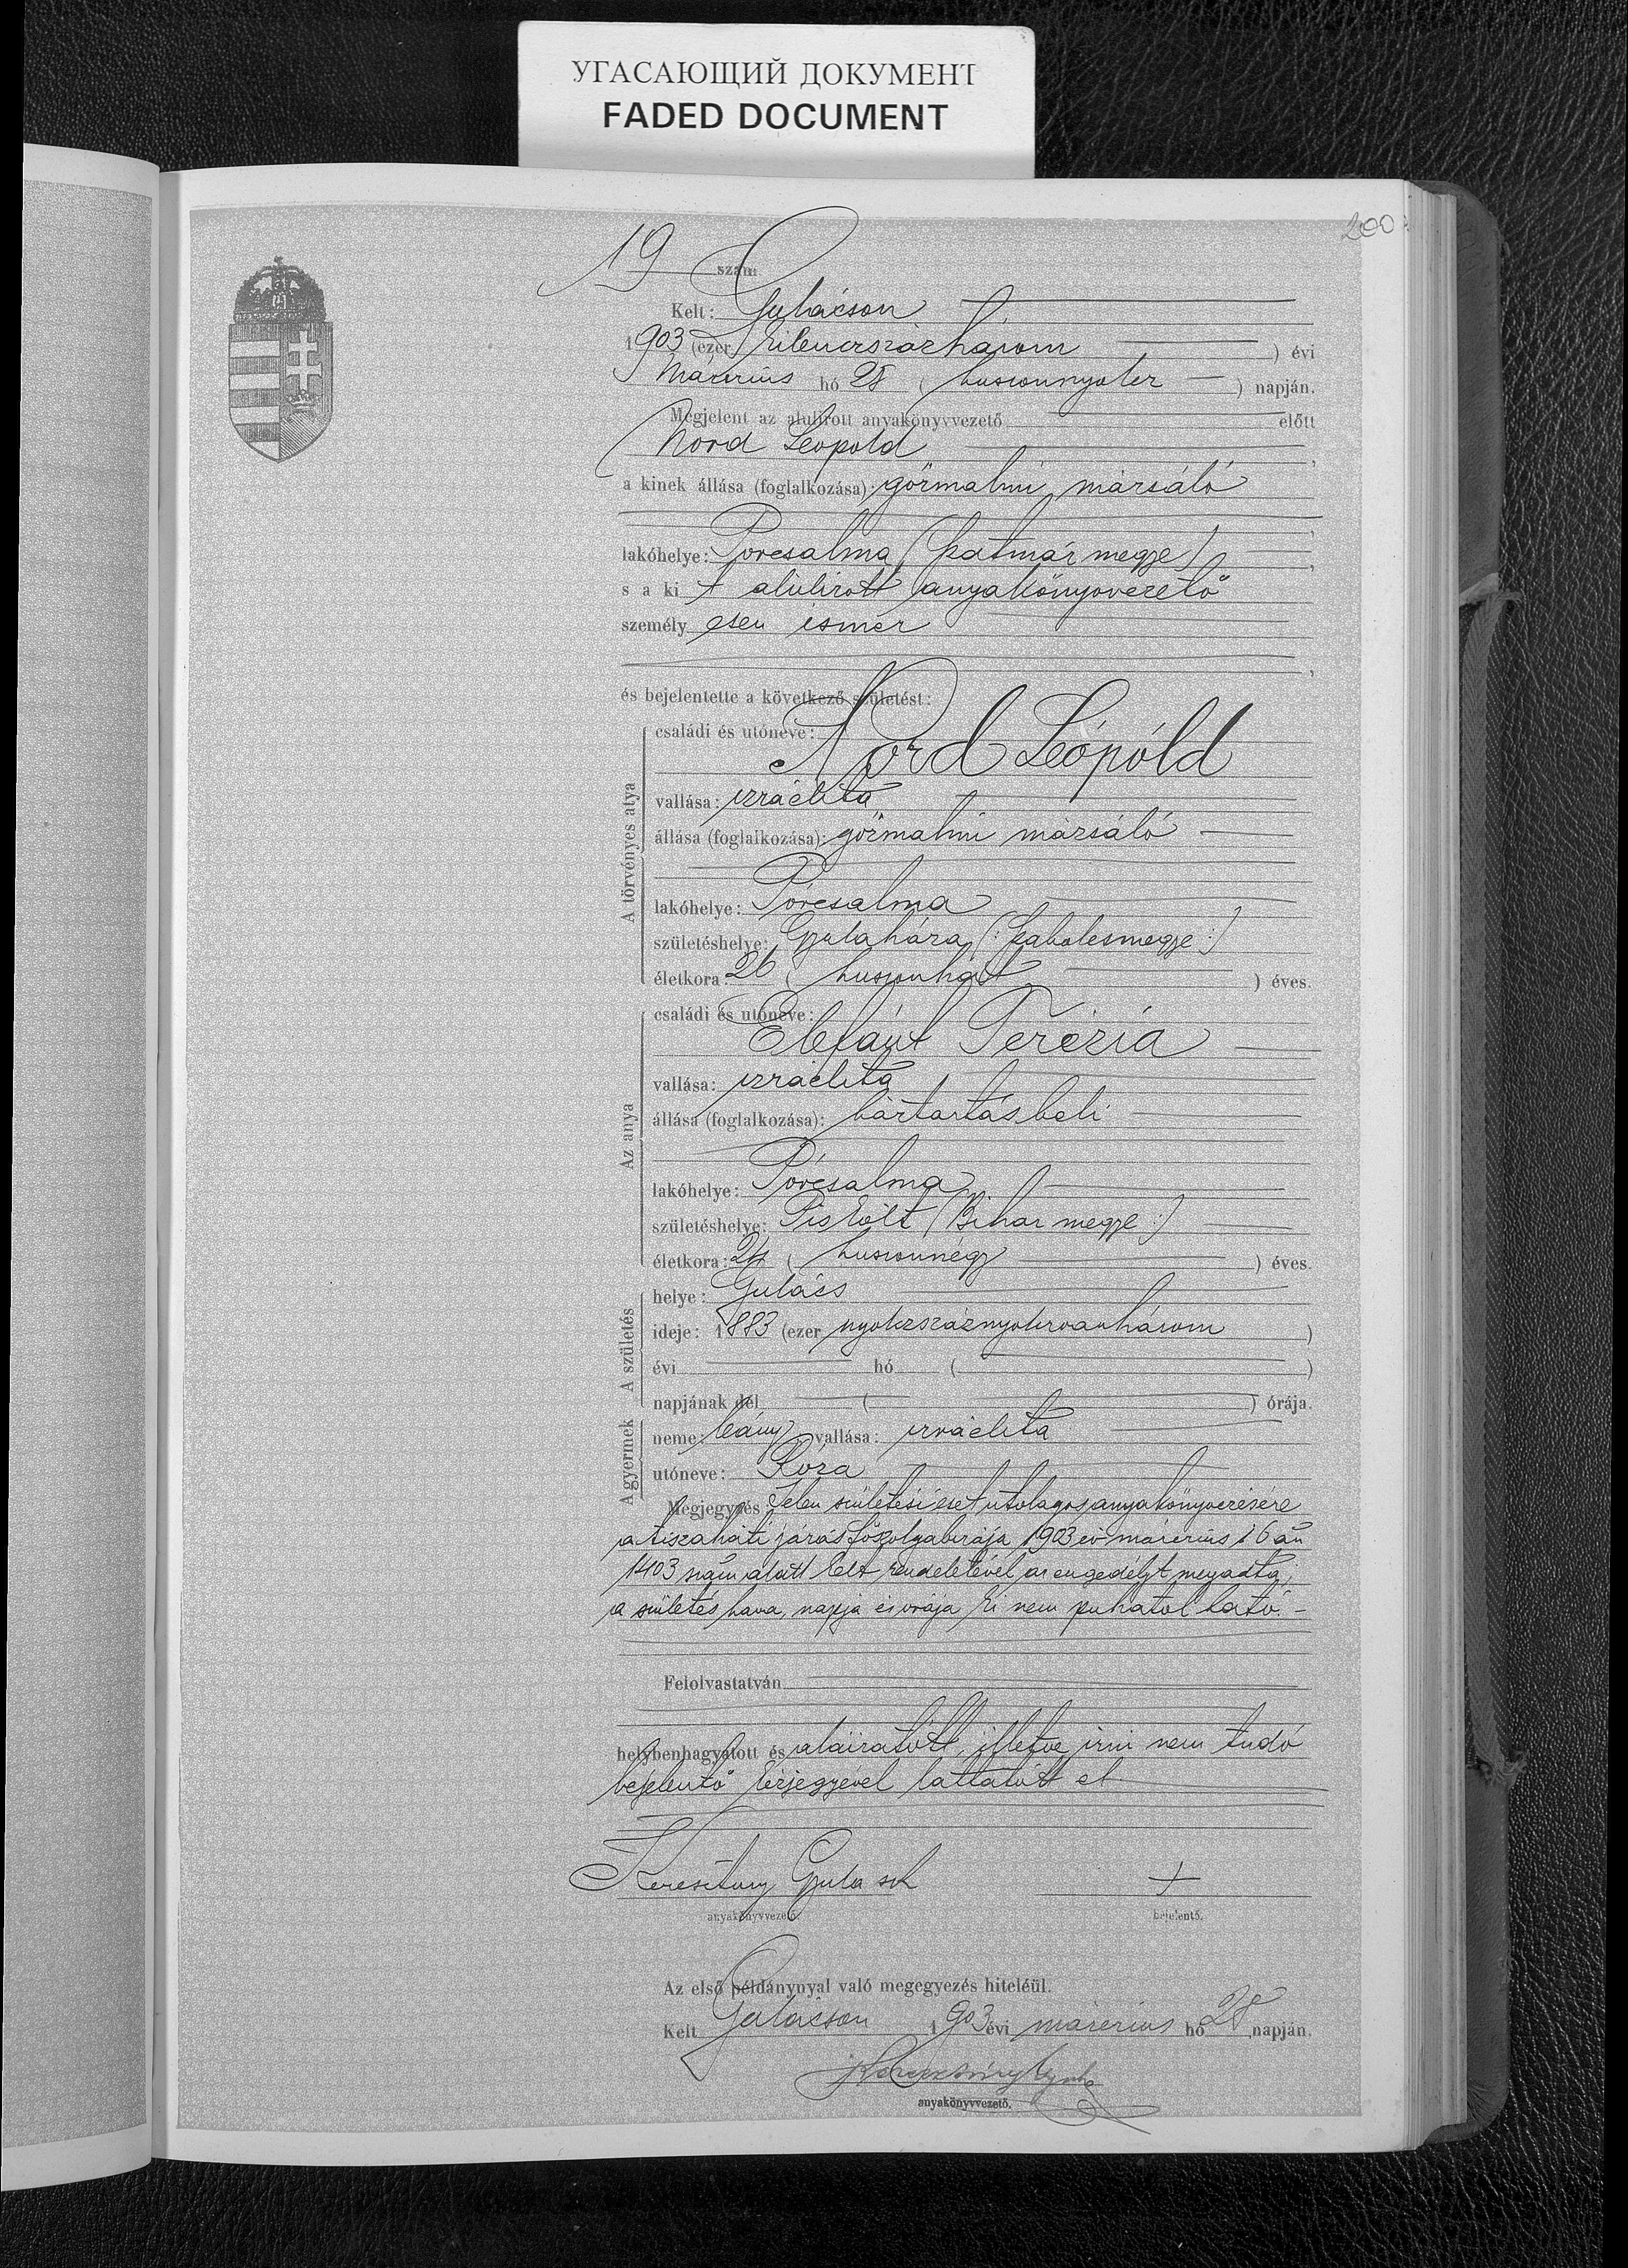 УГАСАЮЩИЙ ДОКУМЕНТ
FADED DOCUMENT
200
19 szám
Kelt: Gulácson
1903 (ezer kilenczszázhárom) évi
Márczius hó 28 (huszonnyolcz) napján.
Megjelent az alulirott anyakönyvvezető előtt
Nord Leopold,
a kinek állása (foglalkozása): gőzmalmi mázsáló
lakóhelye: Porcsalma (Szatmár megye),
s a ki t alulirott anyakönyvvezető
személy esen ismer
és bejelentette a következő születést:
A törvényes atya
családi és utóneve:
Nord Leópóld
vallása: izraélita
állása (foglalkozása): gőzmalmi mázsáló
lakóhelye: Pórcsalma
születéshelye: Gyulaháza (:Szabolcsmegye:)
életkora: 26 (huszonhat) éves.
Az anya
családi és utóneve:
Elefánt Terézia
vallása: izraélita
állása (foglalkozása): háztartásbeli
lakóhelye: Pórcsalma
születéshelye: Piskólt (Bihar megye:)
életkora: 24 (huszonnégy) éves.
A születés
helye: Gulács
ideje: 1883 (ezer nyolczszáznyolczvanhárom)
évi hó ( )
napjának dél ( ) órája.
A gyermek
neme: leány, vallása: izraélita
utóneve: Róza
Megjegyzés: Jelen születési eset utolagos anyakönyvezésére
a tiszaháti járás főszolgabirája 1903 év márczius 16 án
1403 szám alatt kelt rendeletével az engedélyt megadta,
a születés hava, napja és órája ki nem puhatol ható. -
Felolvastatván
helybenhagyatott és aláiratott, illetve irni nem tudó
bejelentő kézjegyével láttatott el
Keresztury Gyula sk +
anyakönyvvezető. bejelentő.
Az első példánynyal való megegyezés hiteléül.
Kelt Gulácson 1903 évi márczius hó 28 napján.
Gyula
anyakönyvvezető.